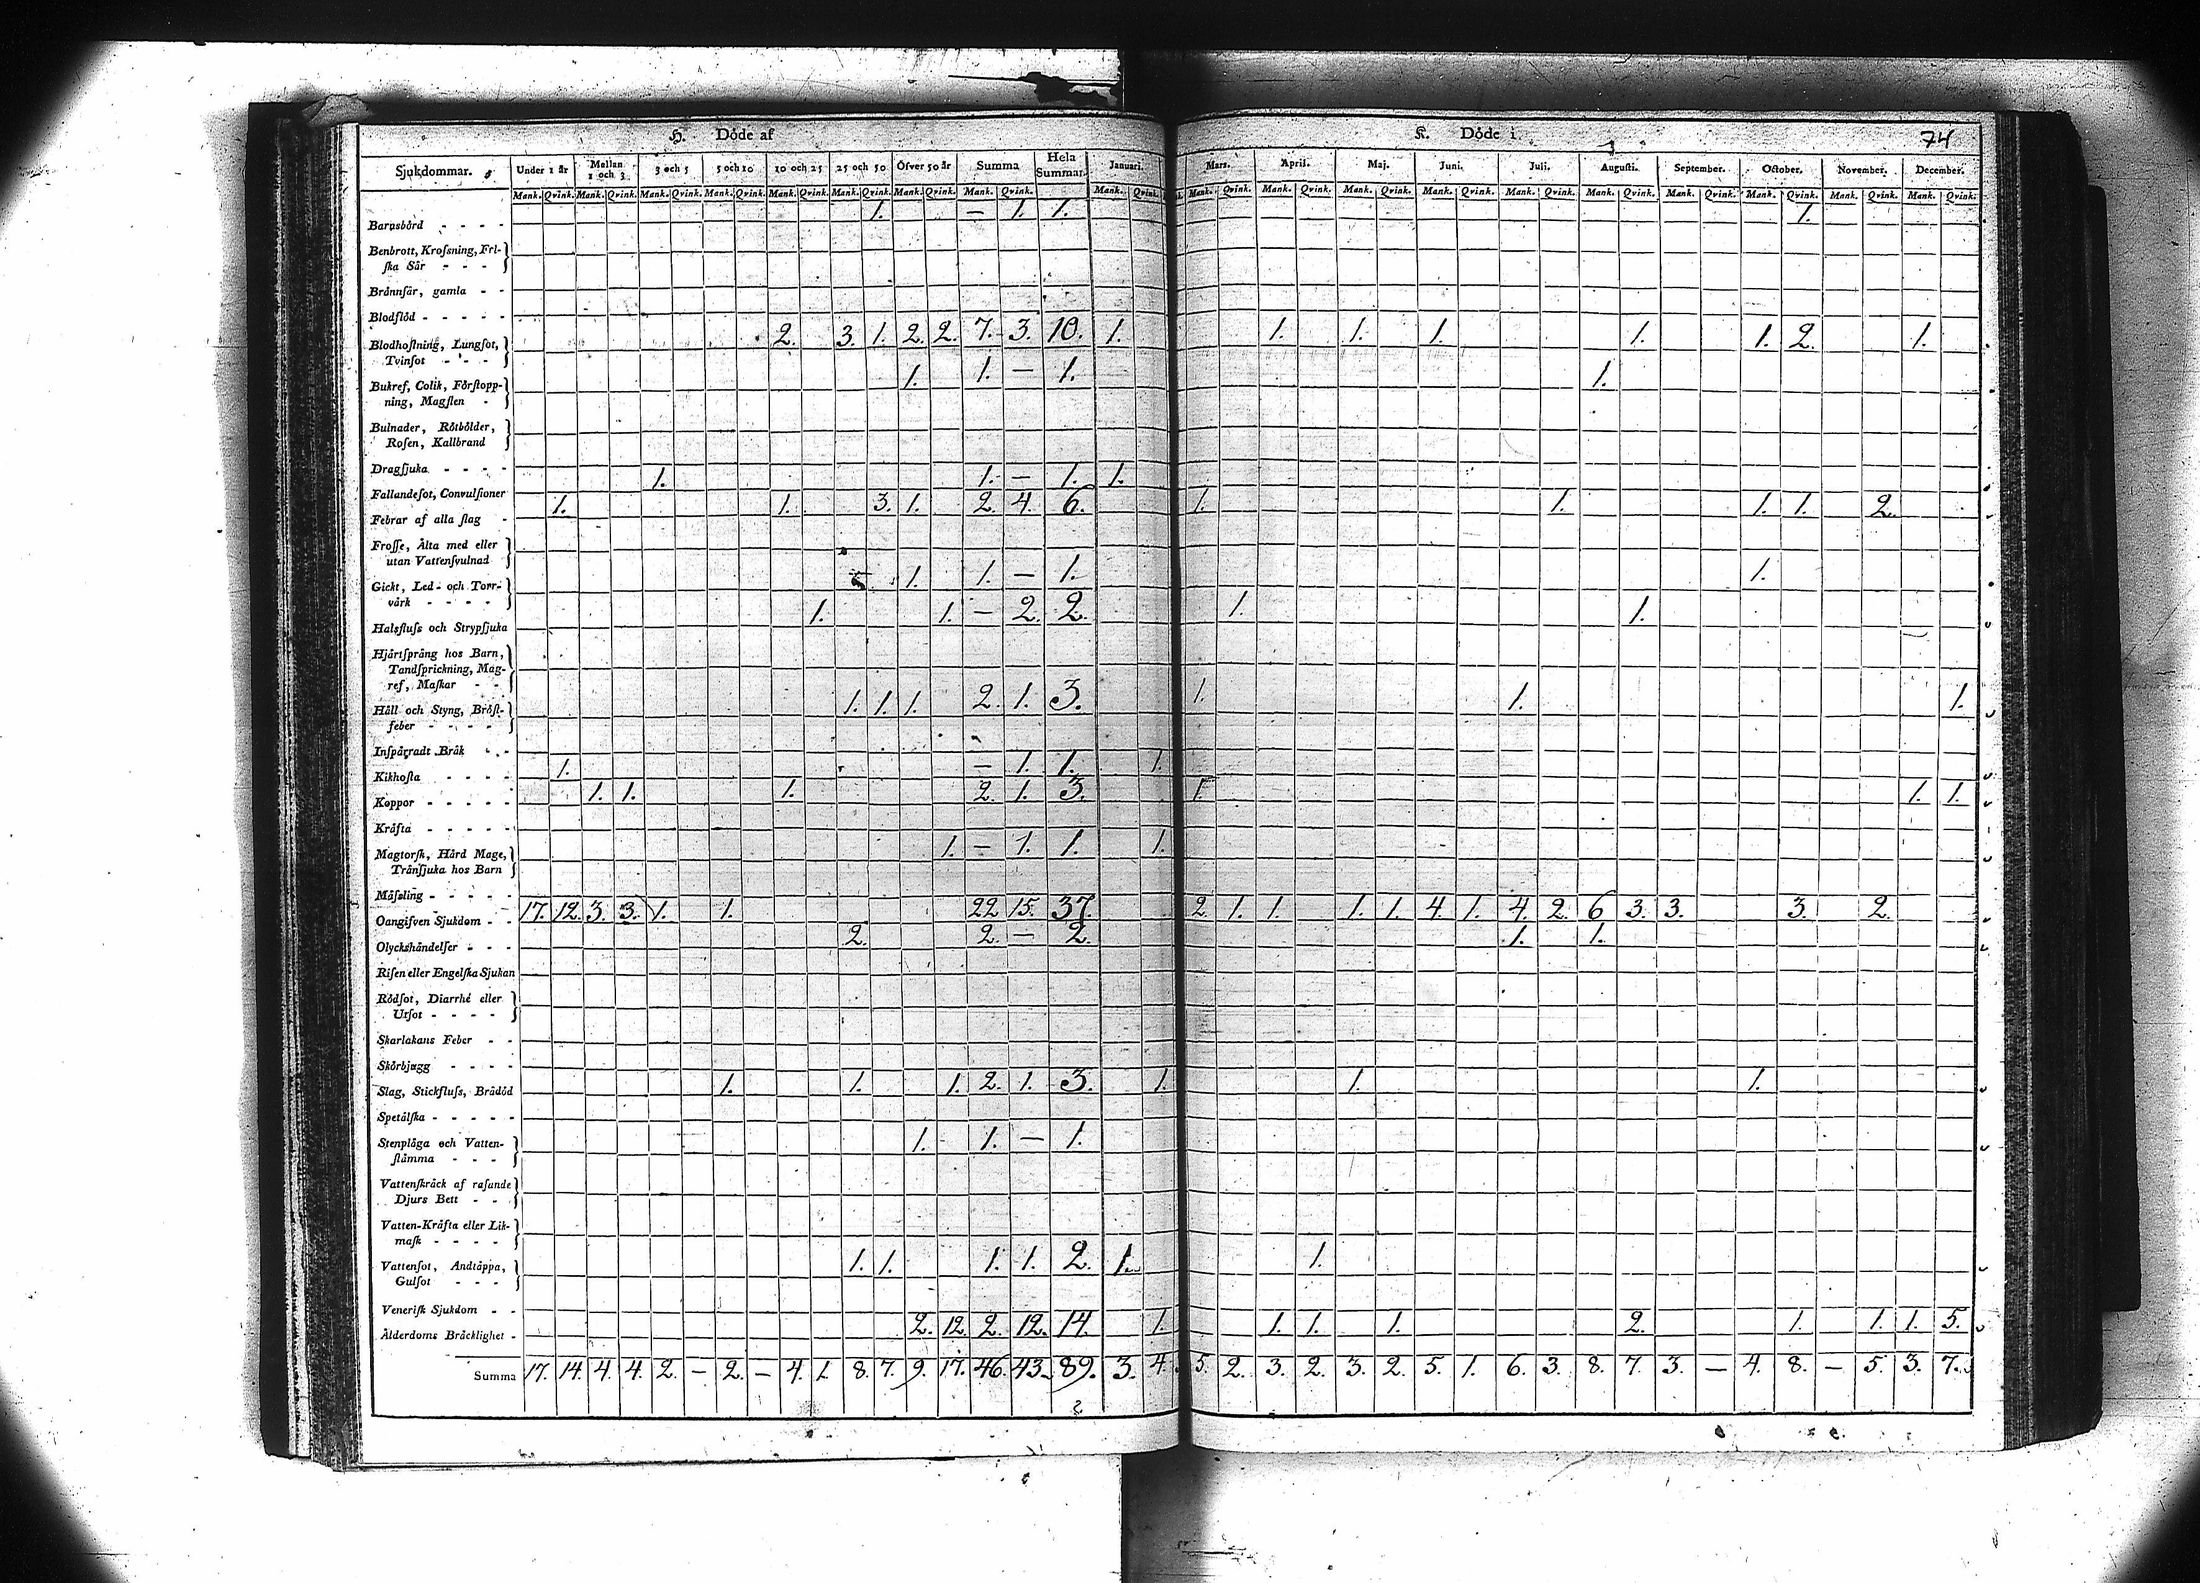 H. Döde af
K. Döde i
74
Sjukdommar. Under 1 år Mellan 1 och 3 3 och 5 5 och 10 10 och 25 25 och 50 Öfver 50 år Summa Hela Summar. Januari. Mars. April. Maj. Juni. Juli. Augusti. September. October. November. December.
Mank. Qvink. Mank. Qvink. Mank. Qvink. Mank. Qvink. Mank. Qvink. Mank. Qvink. Mank. Qvink. Mank. Qvink. Mank. Qvink. Mank. Qvink. Mank. Qvink. Mank. Qvink. Mank. Qvink. Mank. Qvink. Mank. Qvink. Mank. Qvink. Mank. Qvink. Mank. Qvink. Mank. Qvink.
Barnsbörd - - - - 1. — 1. 1. 1.
Benbrott, Krosſning, Fri-
ſka Sår - - -
Brännſår, gamla - -
Blodflöd - - - - -
Blodhoſtning, Lungſot, 2. 3. 1. 2. 2. 7. 3. 10. 1. 1. 1. 1. 1. 1. 2. 1.
Tvinſot - - - -
Bukref, Colik, Förſtopp- 1. 1. — 1. 1.
ning, Magſten -
Bulnader, Rötbölder,
Roſen, Kallbrand
Dragſjuka - - - -
Fallandeſot, Convulſioner 1. 1. — 1. 1.
Febrar af alla ſlag - 1. 1. 3. 1. 2. 4. 6. 1. 1. 1. 1. 2.
Froſſe, Älta med eller
utan Vattenſvulnad
Gickt, Led- och Torr- 1. 1. — 1. 1.
värk - - - -
Halsfluſs och Strypſjuka 1. 1. — 2. 2. 1. 1.
Hjärtſprång hos Barn,
Tandſprickning, Mag-
ref, Maſkar - -
Håll och Styng, Bröſt- 1. 1. 1. 2. 1. 3. 1. 1. 1.
feber - - - -
Inſpärradt Bråk - -
Kikhoſta - - - - 1. — 1. 1. 1.
Koppor - - - - - 1. 1. 1. 2. 1. 3. 1. 1. 1.
Kräfta - - - - -
Magtorſk, Hård Mage, 1. — 1. 1. 1.
Tränſjuka hos Barn
Mäſsling - - - - -
Oangifven Sjukdom - - 17. 12. 3. 3. 1. 1. 22 15. 37. 2. 1. 1. 1. 1. 4. 1. 4. 2. 6 3. 3. 3. 2.
Olyckshändelſer - - - 2. 2. — 2. 1. 1.
Riſen eller Engelſka Sjukan
Rödſot, Diarrhé eller
Utſot - - - -
Skarlakans Feber - -
Skörbjugg - - - -
Slag, Stickfluſs, Brådöd 1. 1. 1. 2. 1. 3. 1. 1. 1.
Spetälſka - - - - -
Stenplåga och Vatten- 1. 1. — 1.
ſtämma - - -
Vattenſkräck af raſande
Djurs Bett - -
Vatten-Kräfta eller Lik-
maſk - - - -
Vattenſot, Andtäppa, 1. 1. 1. 1. 2. 1. 1.
Gulſot - - -
Veneriſk Sjukdom - -
Ålderdoms Bräcklighet - 2. 12. 2. 12. 14. 1. 1. 1. 1. 2. 1. 1. 1. 5.
Summa 17. 14. 4. 4. 2. — 2. — 4. 1. 8. 7. 9. 17. 46. 43. 89. 3. 4. 5. 2. 3. 2. 3. 2. 5. 1. 6. 3. 8. 7. 3. — 4. 8. — 5. 3. 7.